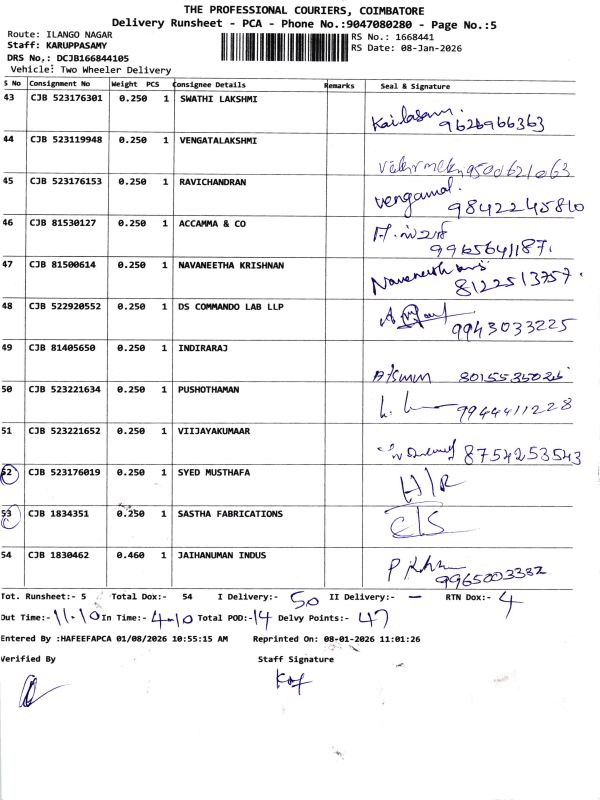 THE PROFESSIONAL COURIERS, COIMBATORE
Delivery Runsheet - PCA - Phone No.:9047080280 - Page No.:5
Route: ILANGO NAGAR
RS No.: 1668441
Staff: KARUPPASAMY
RS Date: 08-Jan-2026
DRS No,: DCJB166844105
Vehicle: Two Wheeler Delivery
S No Consignment No Weight PCS Consignee Details Remarks Seal & Signature
43 CJB 523176301 0.250 1 SWATHI LAKSHMI
Kailasam. 9626966363
44 CJB 523119948 0.250 1 VENGATALAKSHMI
9500621063
45 CJB 523176153 0.250 1 RAVICHANDRAN
vengamal. 9842245810
46 CJB 81530127 0.250 1 ACCAMMA & CO
9965641187.
47 CJB 81500614 0.250 1 NAVANEETHA KRISHNAN
8122513757.
48 CJB 522920552 0.250 1 DS COMMANDO LAB LLP
9943033225
49 CJB 81405650 0.250 1 INDIRARAJ
50 CJB 523221634 0.250 1 PUSHOTHAMAN
9944411228
51 CJB 523221652 0.250 1 VIIJAYAKUMAAR
8754253543
52 CJB 523176019 0.250 1 SYED MUSTHAFA
H/R
53 CJB 1834351 0.250 1 SASTHA FABRICATIONS
C/S
54 CJB 1830462 0.460 1 JAIHANUMAN INDUS
9965003332
Tot. Runsheet:- 5 Total Dox:- 54 I Delivery:- 50 II Delivery:- — RTN Dox:- 4
Out Time:- 11-10 In Time:- 4-10 Total POD:- 14 Delvy Points:- 47
Entered By :HAFEEFAPCA 01/08/2026 10:55:15 AM Reprinted On: 08-01-2026 11:01:26
Verified By Staff Signature